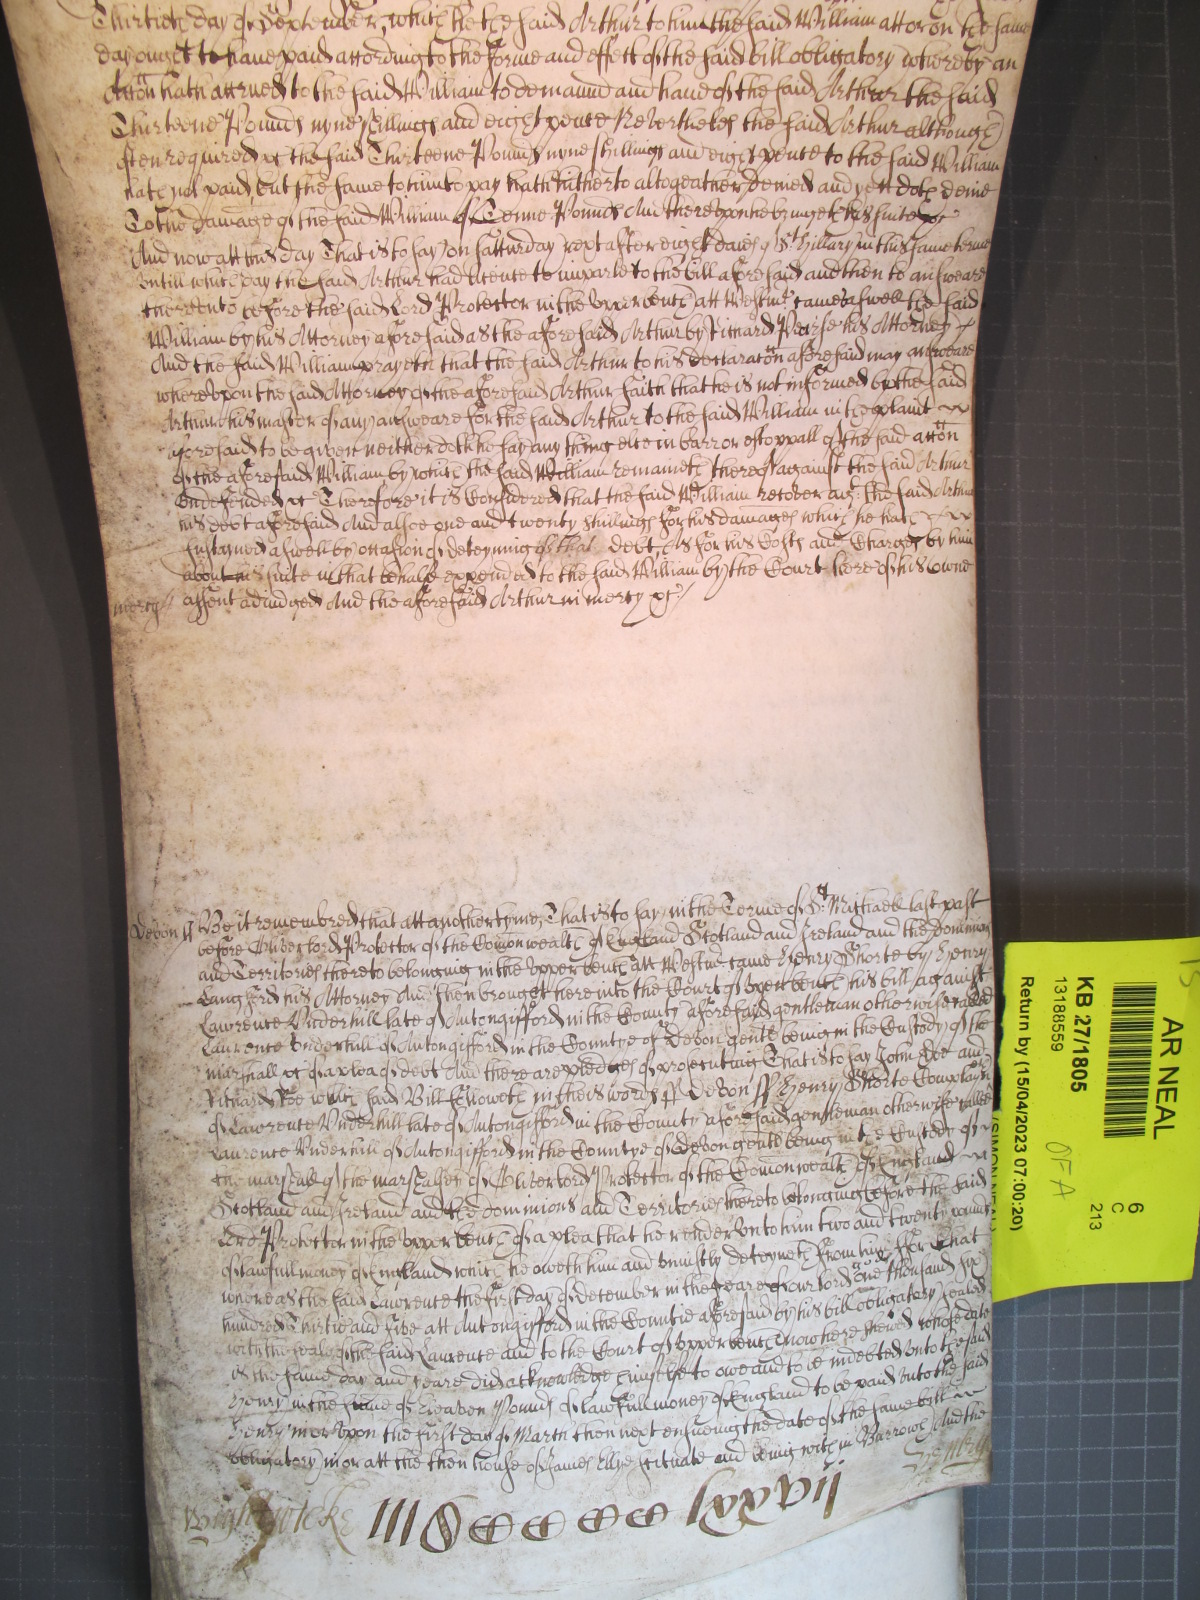 Thirtieth day of September, which he the said Arthur to him the said William att or on the same
day ought to have paid according to the forme and effect of the said bill obligatory whereby an
accon hath accrued to the said William to demaund and have of the said Arthur the said
Thirteene Pounds nyne shillings and eight pence Neverthelesse the said Arthur although
often required &c the said Thirteene Pounds nyne shillings and eight pence to the said William
hath not paid, but the same to him to pay hath hitherto altogeather denied and yett doth denie
To the damage of the said William of Tenne Pounds And thereupon he bringeth his suite &c
And now att this day That is to say on Satturday next after eight daies of St. Hillary in this same terme
untill which day the said Arthur had licence to imparle to the bill aforesaid and then to answeare
thereunto before the said Lord Protector in the upper bench att Westmr. came aswell the said
William by his Attorney aforesaid as the aforesaid Arthur by Richard Pearse his Attorney
And the said William prayeth that the said Arthur to his declaracon aforesaid may answeare
whereupon the said Attorney of the aforesaid Arthur saith that he is not informed by the said
Arthur his master of any answeare for the said Arthur to the said William in the plaint
aforesaid to be given neither doth he say any thing else in barr or estoppall of the said accon
of the aforesaid William by which the said William remaineth thereof against the said Arthur
undefended &c Therefore it is Considered that the said William recover agt. the said Arthur
his debt aforesaid And alsoe one and twenty shillings for his damages which he hath
susteined aswell by occasion of deteyning of that debt, As for his Costs and Charges by him
about his suite in that behalf expended to the said William by the Court here of his owne
mercy assent adiudged And the aforesaid Arthur in mercy &c
Devon ss Be it remembred that att another tyme, That is to say, in the Terme of St. Michaell last past
before Oliver Lord Protector of the Comonwealth of England Scotland and Ireland and the dominions
and Territories thereto belonging in the upper bench att Westmr. came Henry Shorte by Henry
Langford his Attorney And then brought here into the Court of upper bench his bill against
Lawrence Underhill late of Autongifford in the County aforesaid gentleman otherwise called
Laurence Underhill of Autongifford in the Countye of Devon gentl being in the Custody of the
marshall &c of a plea of debt And there are pledges of prosecuting That is to say John Doe and
Richard Roe which said Bill followeth in theis words ss Devon ss Henry Shorte Complayneth
of Lawrence Underhill late of Autongifford in the County aforesaid gentleman otherwise called
Laurence Underhill of Autongifford in the Countye of Devon gentl being in the Custody of
the marshall of the marshalsey of Oliver Lord Protector of the Comonwealth of England
Scotland and Ireland and the dominions and Territories thereto belonging before the said
Lord Protector in the upper bench of a plea that he render unto him two and twenty pounds
of lawfull money of England which he oweth him and uniustly deteyneth from him, For that
whereas the said Laurence the first day of december in the yeare of our lord god one thousand six
hundred Thirtie and five att Autongifford in the Countie aforesaid by his bill obligatory sealed
with the seale of the said Laurence and to the Court of upper bench now here shewed whose date
is the same day and yeare did acknowledge himselfe to owe and to be indebted unto the said
Henry in the sume of Eleaven Pounds of lawfull money of England to be paid unto the said
Henry in or upon the first day of March then next ensueing the date of the same bill
obligatory in or att the then house of James Ellye scituate and being within Barrowe And the
Henry
Wightwicke
lxxvij
AR NEAL
6
C
213
KB 27/1805
13188559
OFA
Return by (15/04/2023 07:00:20)
(SIMON NEAL)